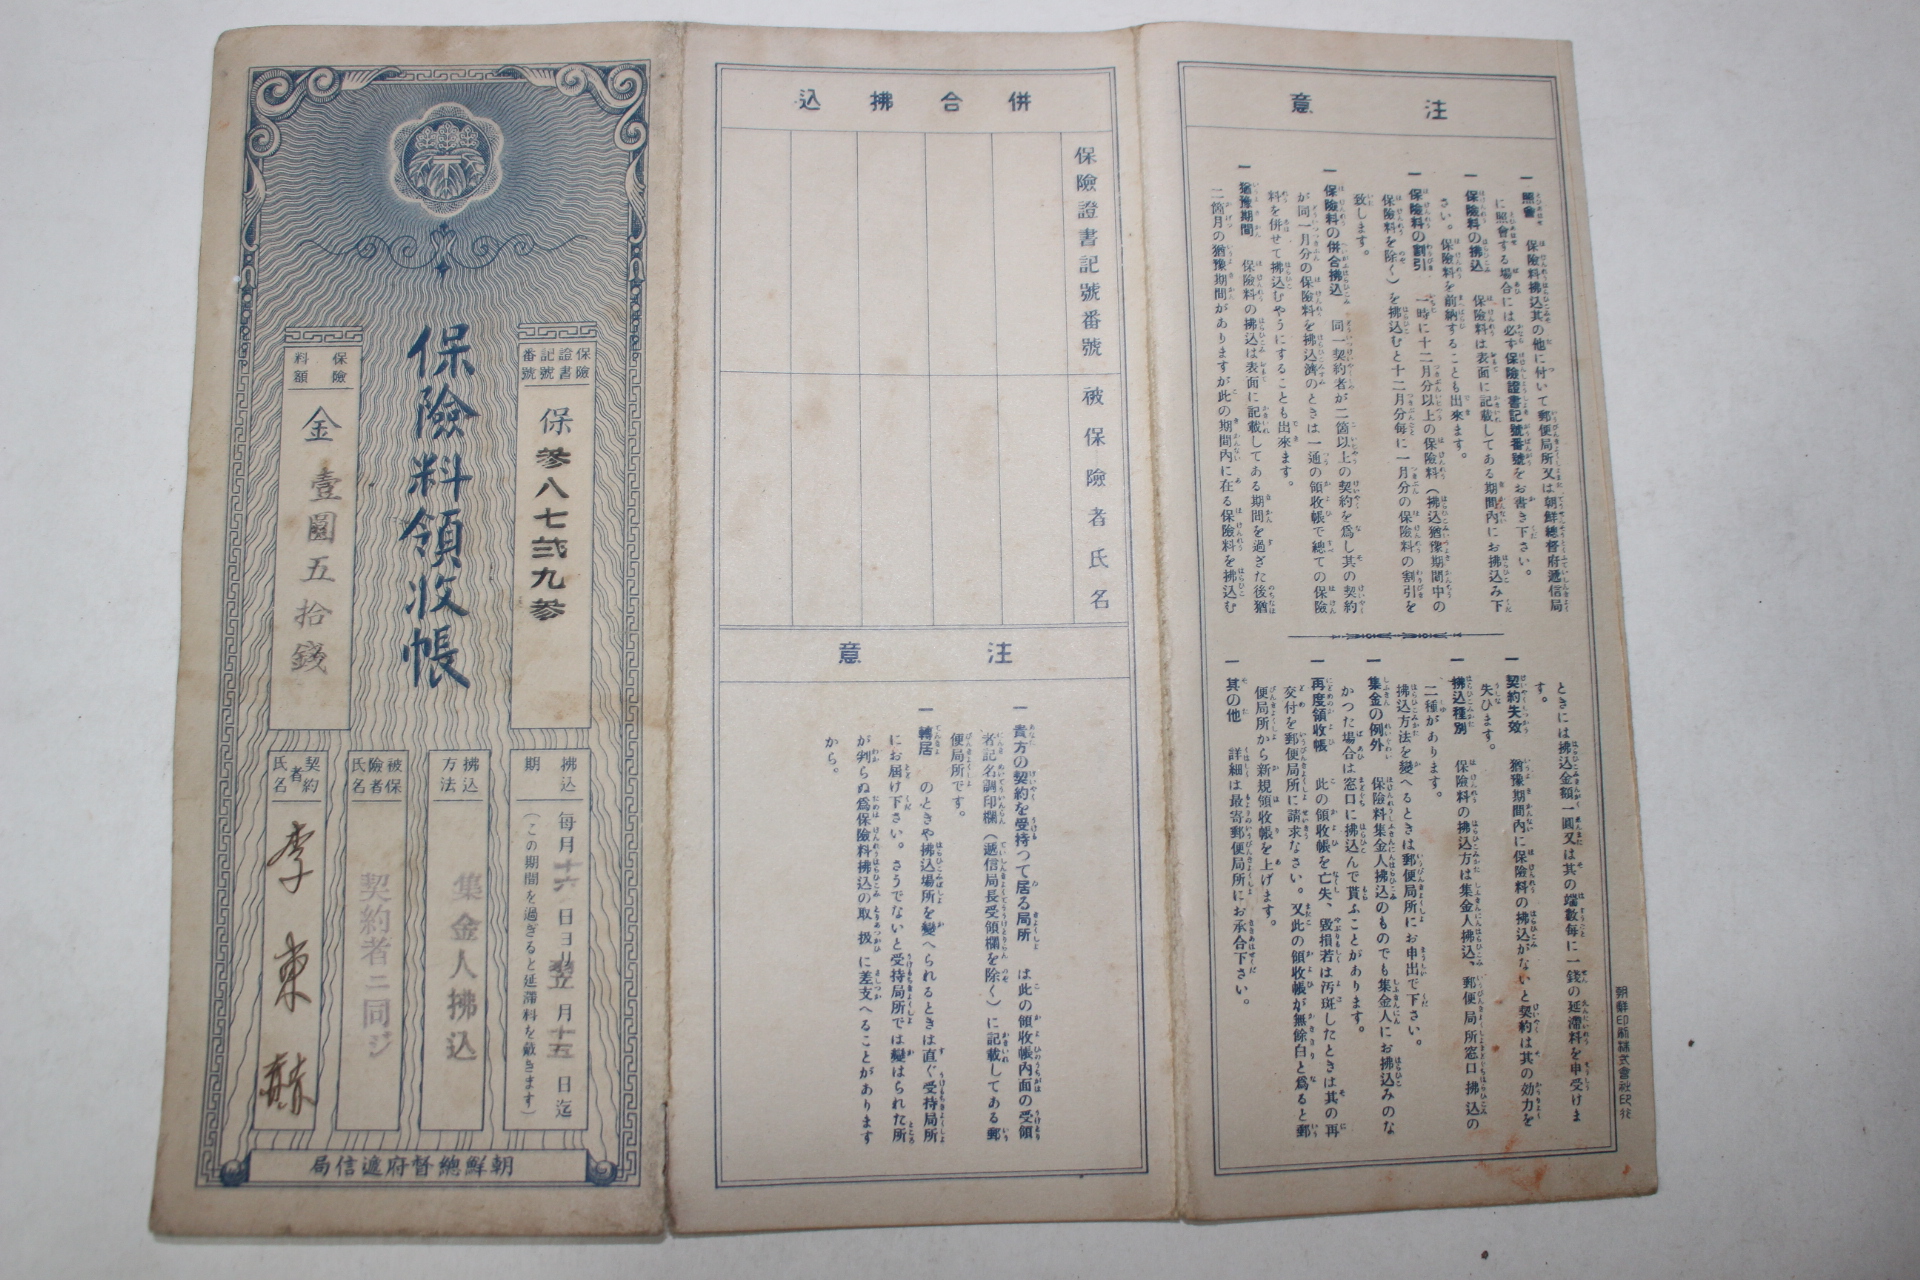 保險料領收帳
保險證書記號番號
保參八七貳九參
保險料額
金壹圓五拾錢
拂込期
每月十六日ヨリ翌月十五日迄
(この期間を過ぎると延滯料を戴きます)
拂込方法
集金人拂込
被保險者氏名
契約者ニ同ジ
契約者氏名
李東赫
朝鮮總督府遞信局
併合拂込
保險證書記號番號
被保險者氏名
注意
一 貴方の契約を受持つて居る局所 は此の領收帳內面の受領
者記名調印欄(遞信局長受領欄を除く)に記載してある郵
便局所です。
一 轉居 のときや拂込場所を變へられるときは直ぐ受持局所
にお屆け下さい。さうでないと受持局所では變はられた所
が判らぬ爲保險料拂込の取扱に差支へることがあります
から。
注意
一 照會 保險料拂込其の他に付いて郵便局所又は朝鮮總督府遞信局
に照會する場合には必ず保險證書記號番號をお書き下さい。
一 保險料の拂込 保險料は表面に記載してある期間內にお拂込み下
さい。保險料を前納することも出來ます。
一 保險料の割引 一時に十二月分以上の保險料(拂込猶豫期間中の
保險料を除く)を拂込むと十二月分每に一月分の保險料の割引を
致します。
一 保險料の併合拂込 同一契約者が二箇以上の契約を爲し其の契約
が同一月分の保險料を拂込濟のときは一通の領收帳で總ての保險
料を併せて拂込むやうにすることも出來ます。
一 猶豫期間 保險料の拂込は表面に記載してある期間を過ぎた後猶
二箇月の猶豫期間がありますが此の期間內に在る保險料を拂込む
ときには拂込金額一圓又は其の端數每に一錢の延滯料を申受けま
す。
一 契約失效 猶豫期間內に保險料の拂込がないと契約は其の効力を
失ひます。
一 拂込種別 保險料の拂込方は集金人拂込、郵便局所窓口拂込の
二種があります。
拂込方法を變へるときは郵便局所にお申出で下さい。
一 集金の例外 保險料集金人拂込のものでも集金人にお拂込みのな
かつた場合は窓口に拂込んで貰ふことがあります。
一 再度領收帳 此の領收帳を亡失、毀損若は汚斑したときは其の再
交付を郵便局所に請求なさい。又此の領收帳が無餘白と爲ると郵
便局所から新規領收帳を上げます。
一 其の他 詳細は最寄郵便局所にお承合下さい。
朝鮮印刷株式會社印行